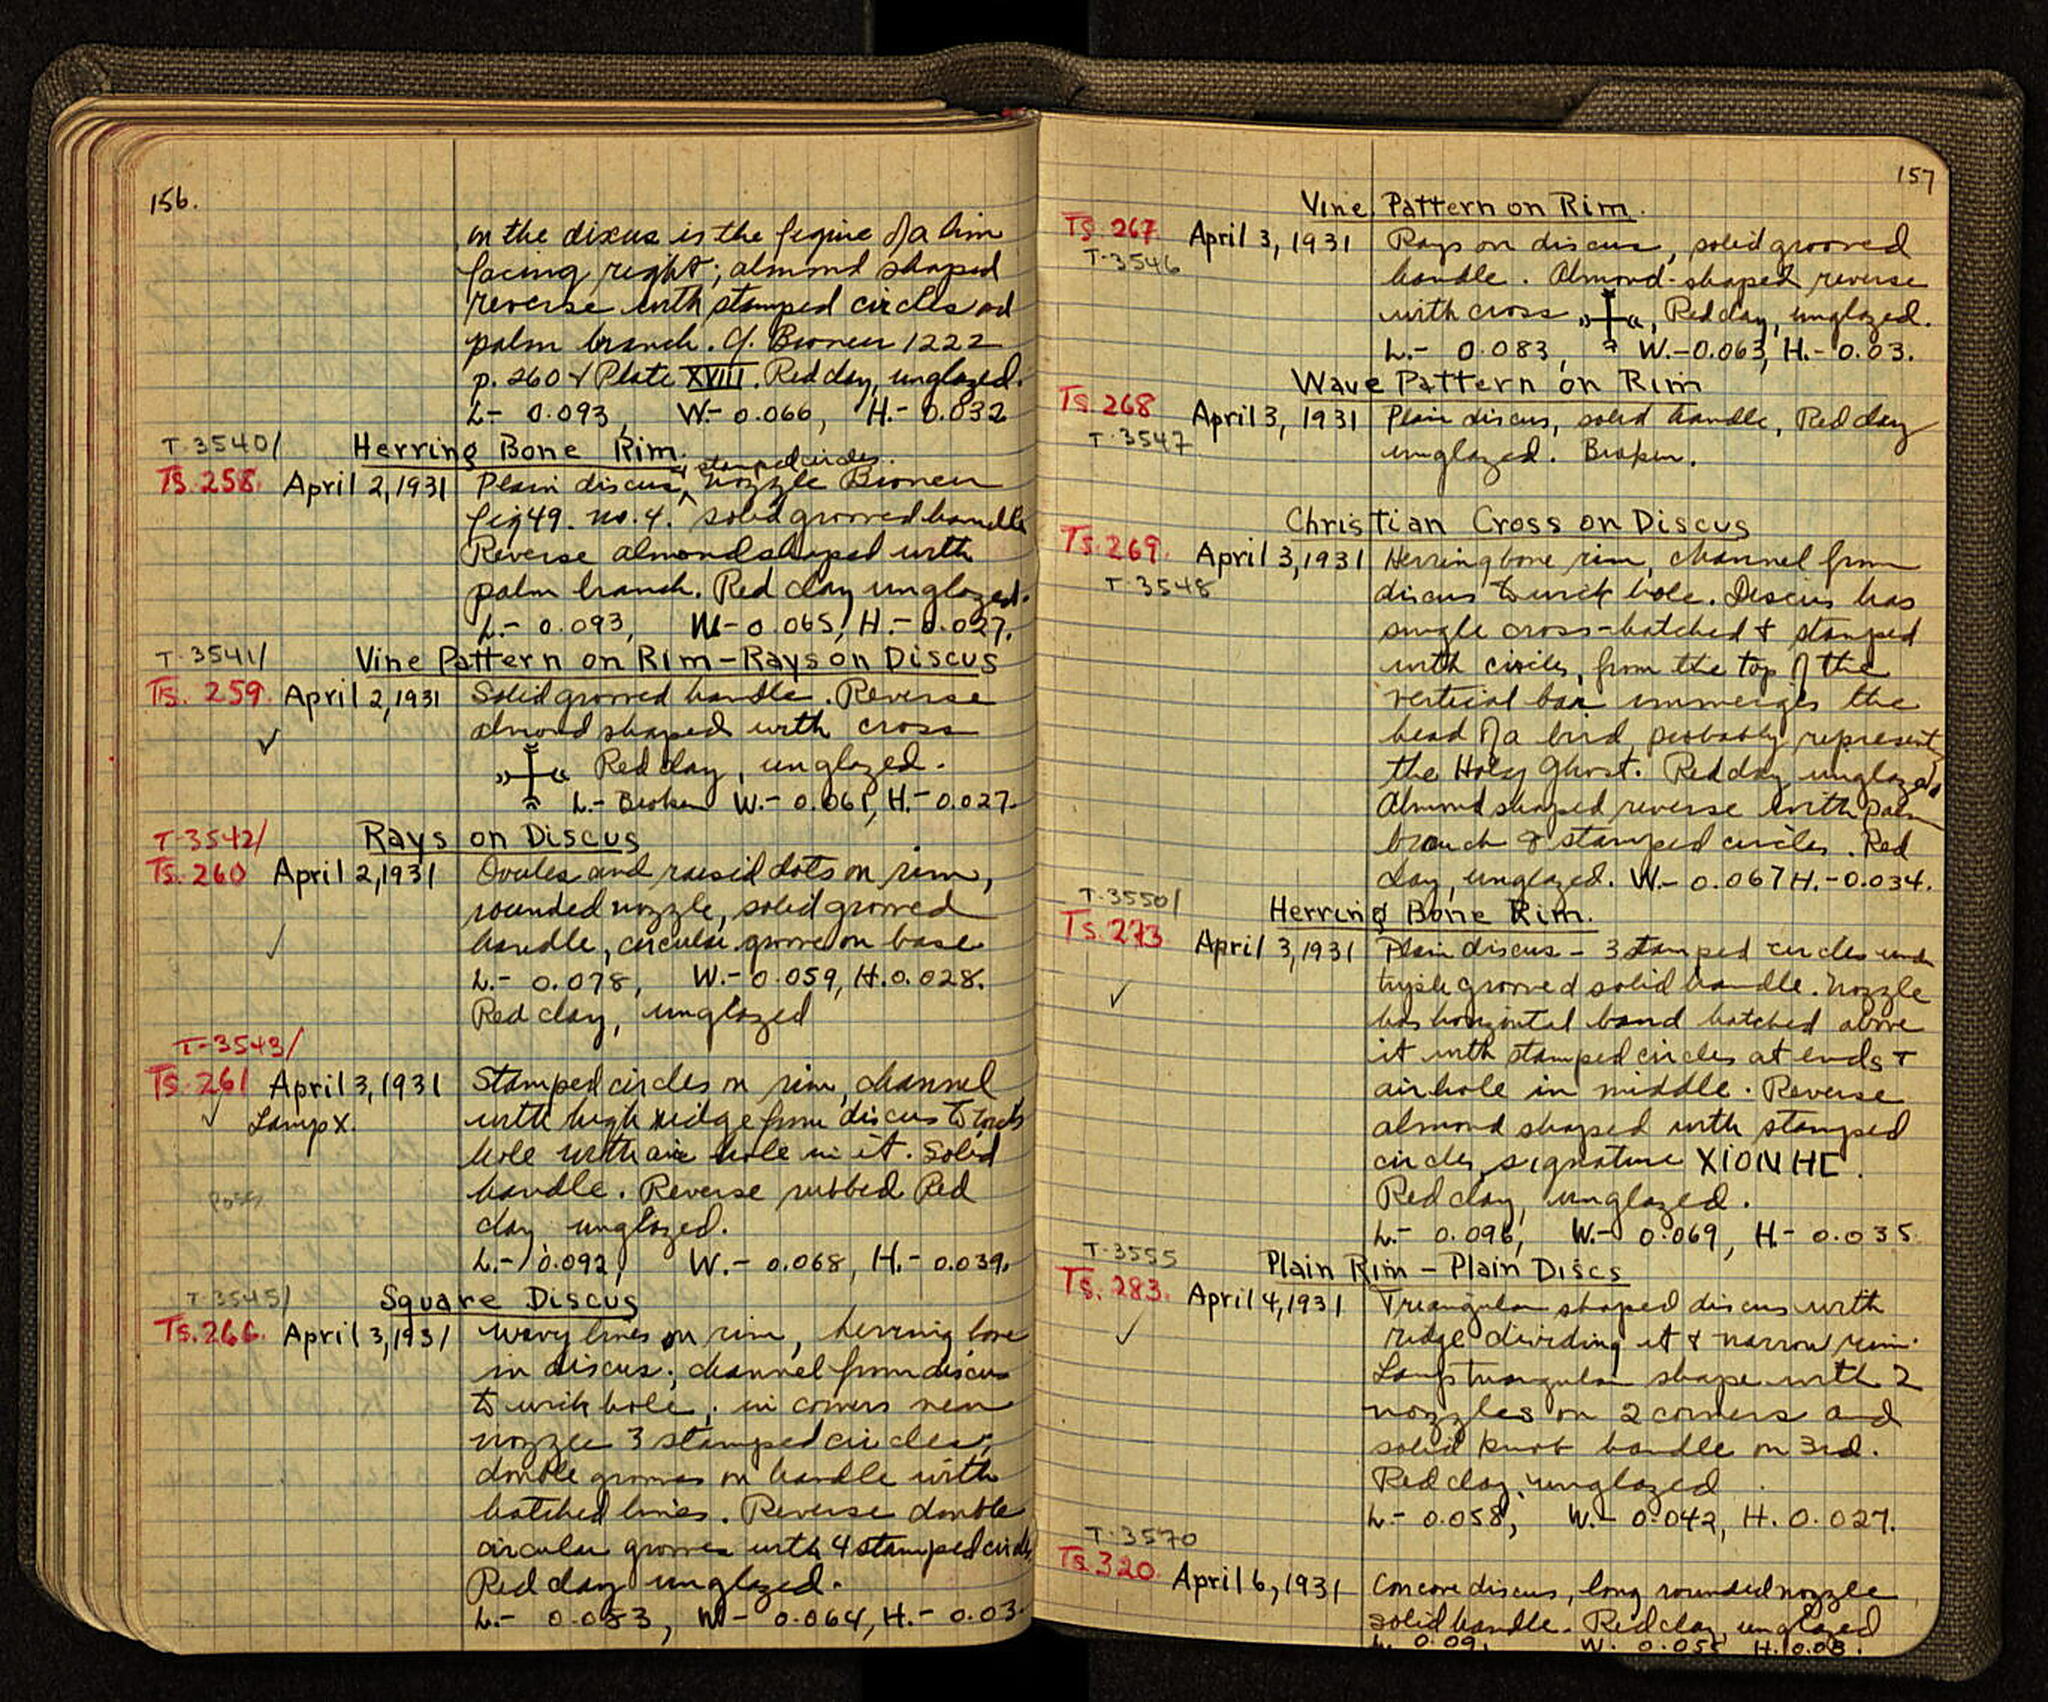 156.
on the discus is the figure of a lion
facing right; almond shaped
reverse with stamped circles and
palm branch. Cf. Broneer 1222
p. 260 & Plate XVIII. Red clay, unglazed.
L.- 0.093, W.- 0.066, H.- 0.032
T-3540/ Herring Bone Rim.
& stamped circles.
Ts. 258. April 2, 1931 Plain discus, nozzle Broneer
fig 49. no. 4. solid grooved handle
Reverse almond shaped with
palm branch. Red clay unglazed.
L.- 0.093, W- 0.065, H.- 0.027.
T-3541/ Vine Pattern on Rim - Rays on Discus
Ts. 259. April 2, 1931 Solid grooved handle. Reverse
almond shaped with cross
✓
Red clay, unglazed.
L.- Broken W.- 0.061, H.- 0.027.
T-3542/ Rays on Discus
Ts. 260 April 2, 1931 Ovules and raised dots on rim,
rounded nozzle, solid grooved
✓ handle, circular groove on base
L.- 0.078, W.- 0.059, H. 0.028.
Red clay, unglazed
T-3543/
Ts. 261 April 3, 1931 Stamped circles on rim, channel
✓ Lamp X. with high ridge from discus to wick
hole with air hole in it. Solid
handle. Reverse rubbed Red
clay unglazed.
L.- 0.092, W.- 0.068, H.- 0.039.
T-3545/ Square Discus
Ts. 266. April 3, 1931 wavy lines on rim, herring bone
in discus; channel from discus
to wick hole; in corners near
nozzle 3 stamped circles;
double grooves on handle with
hatched lines. Reverse double
circular grooves with 4 stamped circles
Red clay unglazed.
L.- 0.083, W- 0.064, H.- 0.03.
157
Vine Pattern on Rim.
Ts. 267 April 3, 1931 Rays on discus, solid grooved
T-3546 handle. Almond-shaped reverse
with cross, Red clay, unglazed.
L.- 0.083, W.- 0.063, H.- 0.03.
Wave Pattern on Rim
Ts. 268 April 3, 1931 Plain discus, solid handle, Red clay
T-3547 unglazed. Broken.
Christian Cross on Discus
Ts. 269. April 3, 1931 Herring bone rim, channel from
T-3548 discus to wick hole. Discus has
single cross-hatched & stamped
with circles, from the top of the
vertical bar immerges the
head of a bird probably represent
the Holy Ghost. Red clay unglazed,
Almond shaped reverse with palm
branch & stamped circles. Red
clay, unglazed. W.- 0.067 H.- 0.034.
T-3550/ Herring Bone Rim.
Ts. 273 April 3, 1931 Plain discus - 3 stamped circles under
✓ triple grooved solid handle. Nozzle
has horizontal band hatched above
it with stamped circles at ends &
air hole in middle. Reverse
almond shaped with stamped
circles, signature ΧΙΟΝΗC.
Red clay, unglazed.
L.- 0.096, W.- 0.069, H- 0.035
T-3555 Plain Rim - Plain Discs
Ts. 283. April 4, 1931 Triangular shaped discus with
✓ ridge dividing it & narrow rim.
Lamp triangular shape with 2
nozzles on 2 corners and
solid knob handle on 3rd.
Red clay, unglazed
L.- 0.058, W.- 0.042, H. 0.027.
T-3570
Ts. 320. April 6, 1931 Concave discus, long rounded nozzle
solid handle. Red clay, unglazed
L. 0.09, W. H. 0.03.